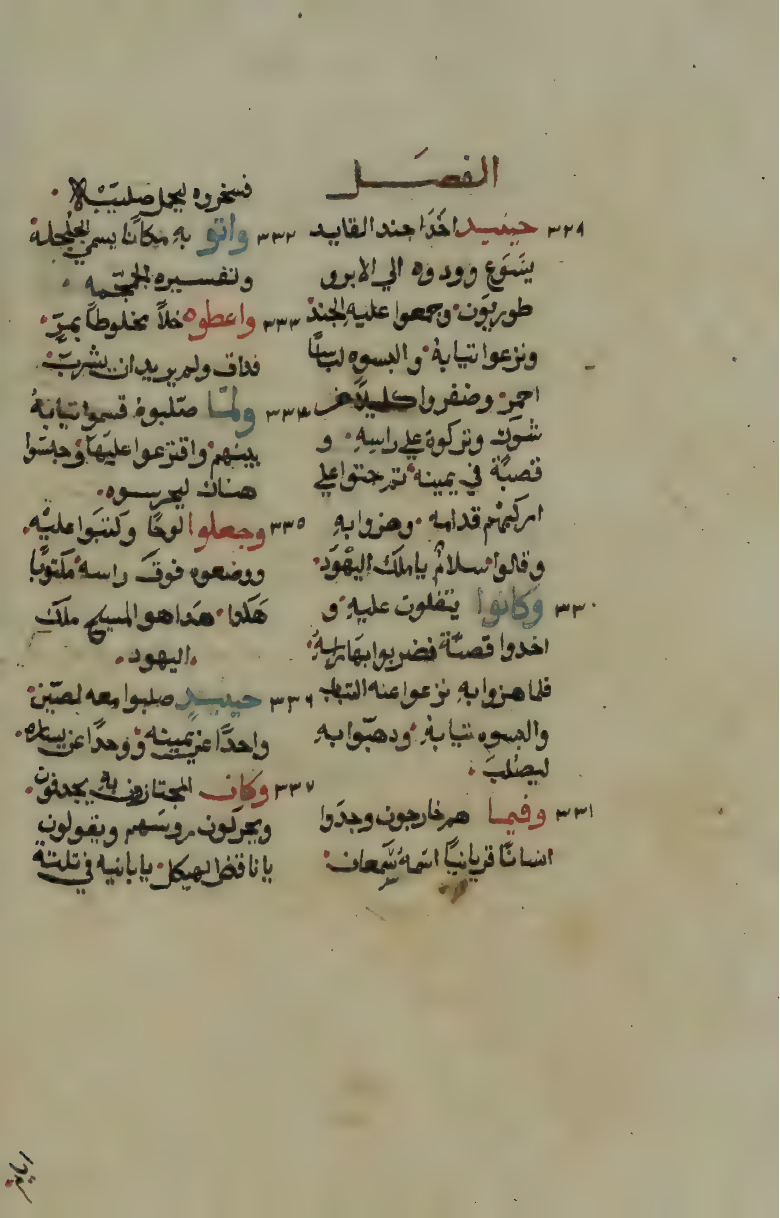 الفصل
٣٢٩ حينيد اخدا جند القايد
يسوع وودوه الي الابرو
طوريون وجمعوا عليه الجند
ونزعوا تيابه والبسوه لباسا
احمر وضفروا كليلا من
شوك وتركوه علي راسه و
قصبة في يمينه تم جتوا علي
ركبهم قدامه وهزوا به
وقالوا سلام يا ملك اليهود
٣٣٠ وكانوا يتفلون عليه و
اخدوا قصبة فضربوا بها راسه
فلما هزوا به نزعوا عنه التياب
والبسوه تيابه ودهبوا به
ليصلب
٣٣١ وفيما هم خارجون وجدوا
انسانا قريانيا اسمه سمعان
فسخروه ليحمل صليبه
٣٣٢ واتو به مكانا يسمي الجلجلة
وتفسيره الجمجمه
٣٣٣ واعطوه خلا مخلوطا بمر
فداق ولم يريد ان يشرب
٣٣٤ ولما صلبوه قسموا تيابه
بينهم واقترعوا عليها وجلسوا
هناك ليحرسوه
٣٣٥ وجعلوا لوحا وكتبوا عليه
ووضعوه فوق راسه مكتوبا
هكدا هدا هو المسيح ملك
اليهود
٣٣٦ حينيد صلبوا معه لصين
واحدا عن يمينه ووحدا عن يساره
٣٣٧ وكان المجتازون به يجدفون
ويحركون روسهم ويقولون
يا ناقض الهيكل يا بانيه في تلتة